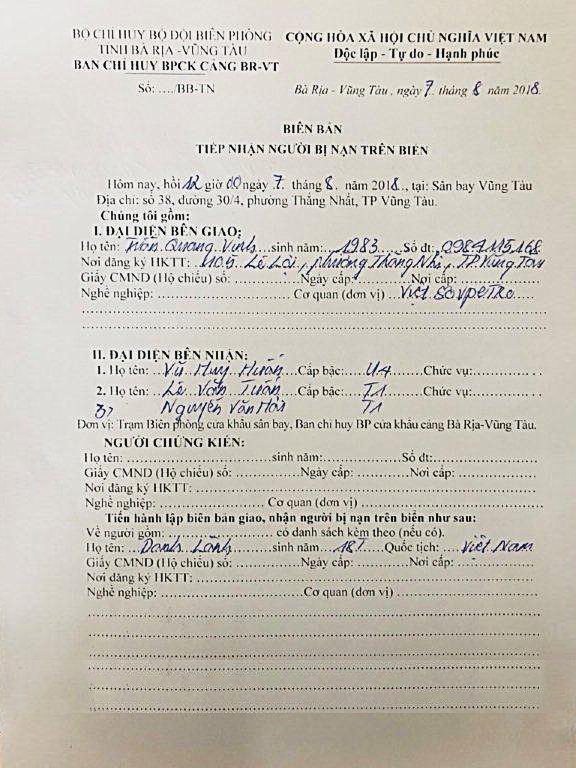 BỘ CHỈ HUY BỘ ĐỘI BIÊN PHÒNG
TỈNH BÀ RỊA -VŨNG TÀU
BAN CHỈ HUY BPCK CẢNG BR-VT
Số: ..../BB-TN
CỘNG HÒA XÃ HỘI CHỦ NGHĨA VIỆT NAM
Độc lập - Tự do - Hạnh phúc
Bà Rịa - Vũng Tàu , ngày 7. tháng 8 năm 2018.
BIÊN BẢN
TIẾP NHẬN NGƯỜI BỊ NẠN TRÊN BIỂN
Hôm nay, hồi 12 giờ 00 ngày 7. tháng 8. năm 2018.., tại: Sân bay Vũng Tàu
Địa chỉ: số 38, đường 30/4, phường Thắng Nhất, TP Vũng Tàu.
Chúng tôi gồm:
I. ĐẠI DIỆN BÊN GIAO:
Họ tên: Trần Quang Vinh sinh năm: 1983 Số đt:
Nơi đăng ký HKTT: Lê Lợi, phường Thắng Nhì, TP. Vũng Tàu
Giấy CMND (Hộ chiếu) số: Ngày cấp: Nơi cấp:
Nghề nghiệp: Cơ quan (đơn vị) Việt Sovpetro
II. ĐẠI DIỆN BÊN NHẬN:
1. Họ tên: Vũ Huy Cấp bậc: U4 Chức vụ:
2. Họ tên: Lê Văn Tuấn Cấp bậc: T1 Chức vụ:
3, Nguyễn Văn T1
Đơn vị: Trạm Biên phòng cửa khẩu sân bay, Ban chỉ huy BP cửa khẩu cảng Bà Rịa-Vũng Tàu.
NGƯỜI CHỨNG KIẾN:
Họ tên: sinh năm: Số đt:
Giấy CMND (Hộ chiếu) số: Ngày cấp: Nơi cấp:
Nơi đăng ký HKTT:
Nghề nghiệp: Cơ quan (đơn vị)
Tiến hành lập biên bản giao, nhận người bị nạn trên biển như sau:
Về người gồm: có danh sách kèm theo (nếu có).
Họ tên: Danh sinh năm: 187 Quốc tịch: Việt Nam
Giấy CMND (Hộ chiếu) số: Ngày cấp: Nơi cấp:
Nơi đăng ký HKTT:
Nghề nghiệp: Cơ quan (đơn vị)